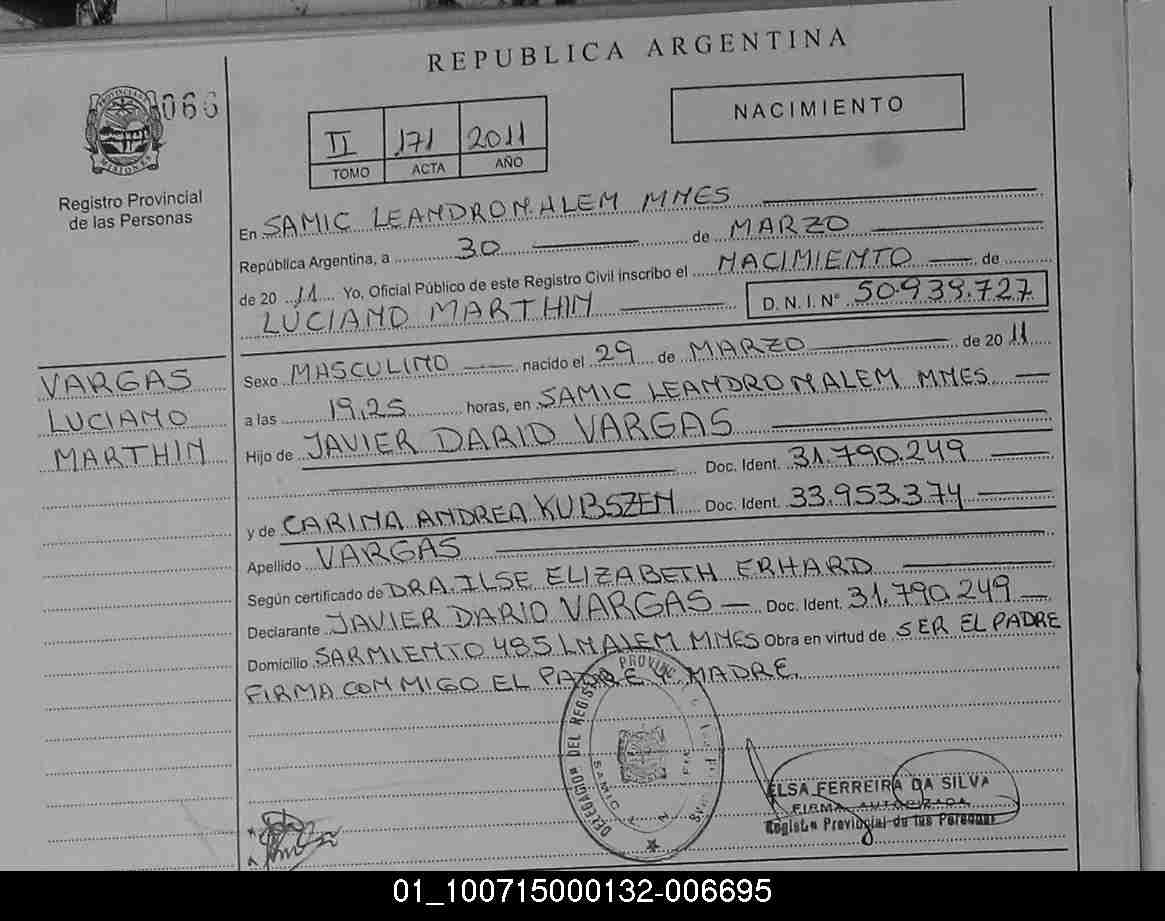 REPUBLICA ARGENTINA
066
PROVINCIA
MISIONES
Registro Provincial
de las Personas
II 171 2011
TOMO ACTA AÑO
NACIMIENTO
En SAMIC LEANDRO N. ALEM MNES
República Argentina, a 30 de MARZO
de 20 11 Yo, Oficial Público de este Registro Civil inscribo el NACIMIENTO de
LUCIANO MARTHIN D.N.I. N° 50.939.727
VARGAS
LUCIANO
MARTHIN
Sexo MASCULINO nacido el 29 de MARZO de 20 11
a las 19,25 horas, en SAMIC LEANDRO N ALEM MNES
Hijo de JAVIER DARIO VARGAS
Doc. Ident. 31.790.249
y de CARINA ANDREA KUBSZEN Doc. Ident. 33.953.374
Apellido VARGAS
Según certificado de DRA. ILSE ELIZABETH ERHARD
Declarante JAVIER DARIO VARGAS Doc. Ident. 31.790.249
Domicilio SARMIENTO 485 LNALEM MNES Obra en virtud de SER EL PADRE
FIRMA CON MIGO EL PADRE Y MADRE.
DELEGACION DEL REGISTRO PROVINC
SAMIC
ELSA FERREIRA DA SILVA
FIRMA AUTORIZADA
Registro Provincial de las Personas
01_100715000132-006695